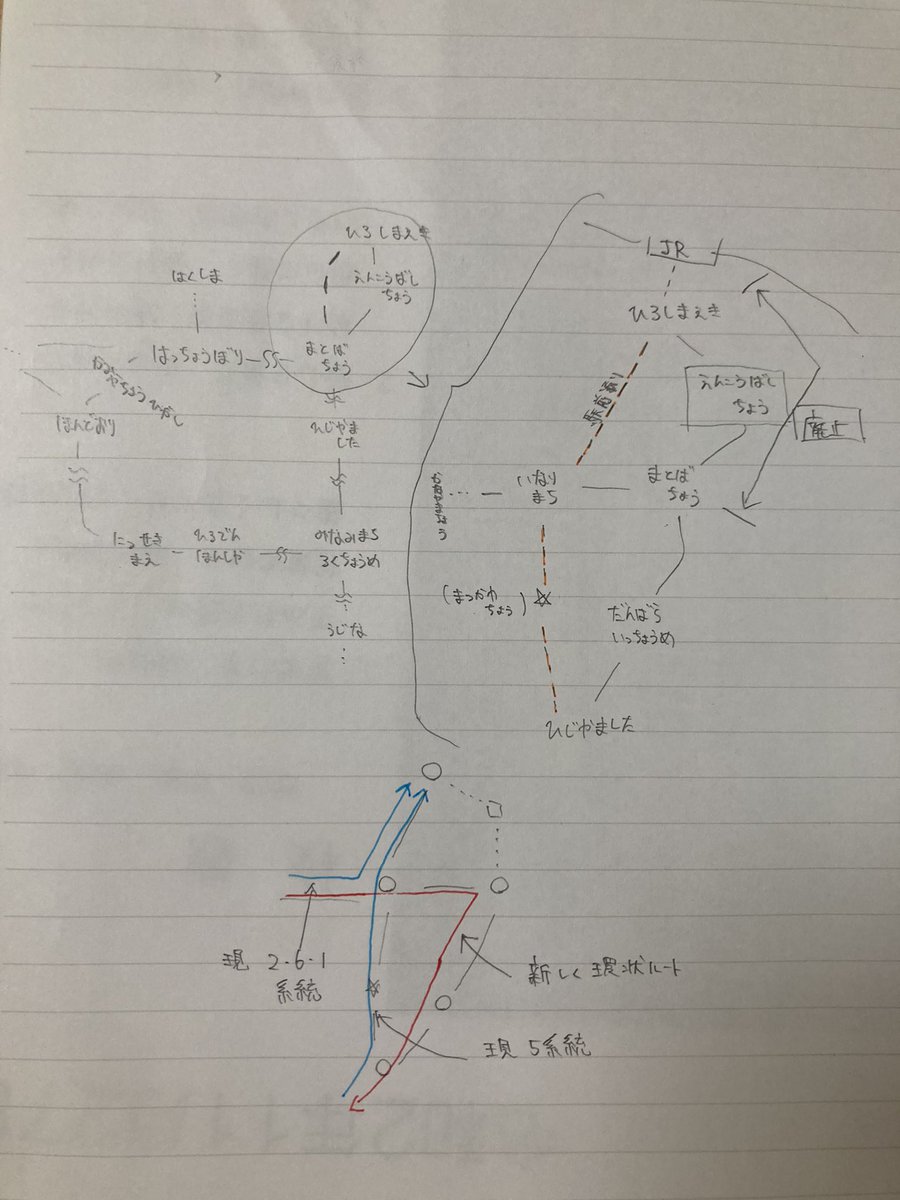 ひろしまえき
えんこうばし
ちょう
はくしま
はっちょうぼり
まとば
ちょう
ほんどおり
ひじやま
した
にっせき
まえ
ひろでん
ほんしゃ
みなみまち
ろくちょうめ
うじな
JR
ひろしまえき
駅前通り
えんこうばし
ちょう
廃止
いなり
まち
まとば
ちょう
(まつかわ
ちょう)
だんばら
いっちょうめ
ひじやました
現 2・6・1
系統
新しく環状ルート
現 5系統